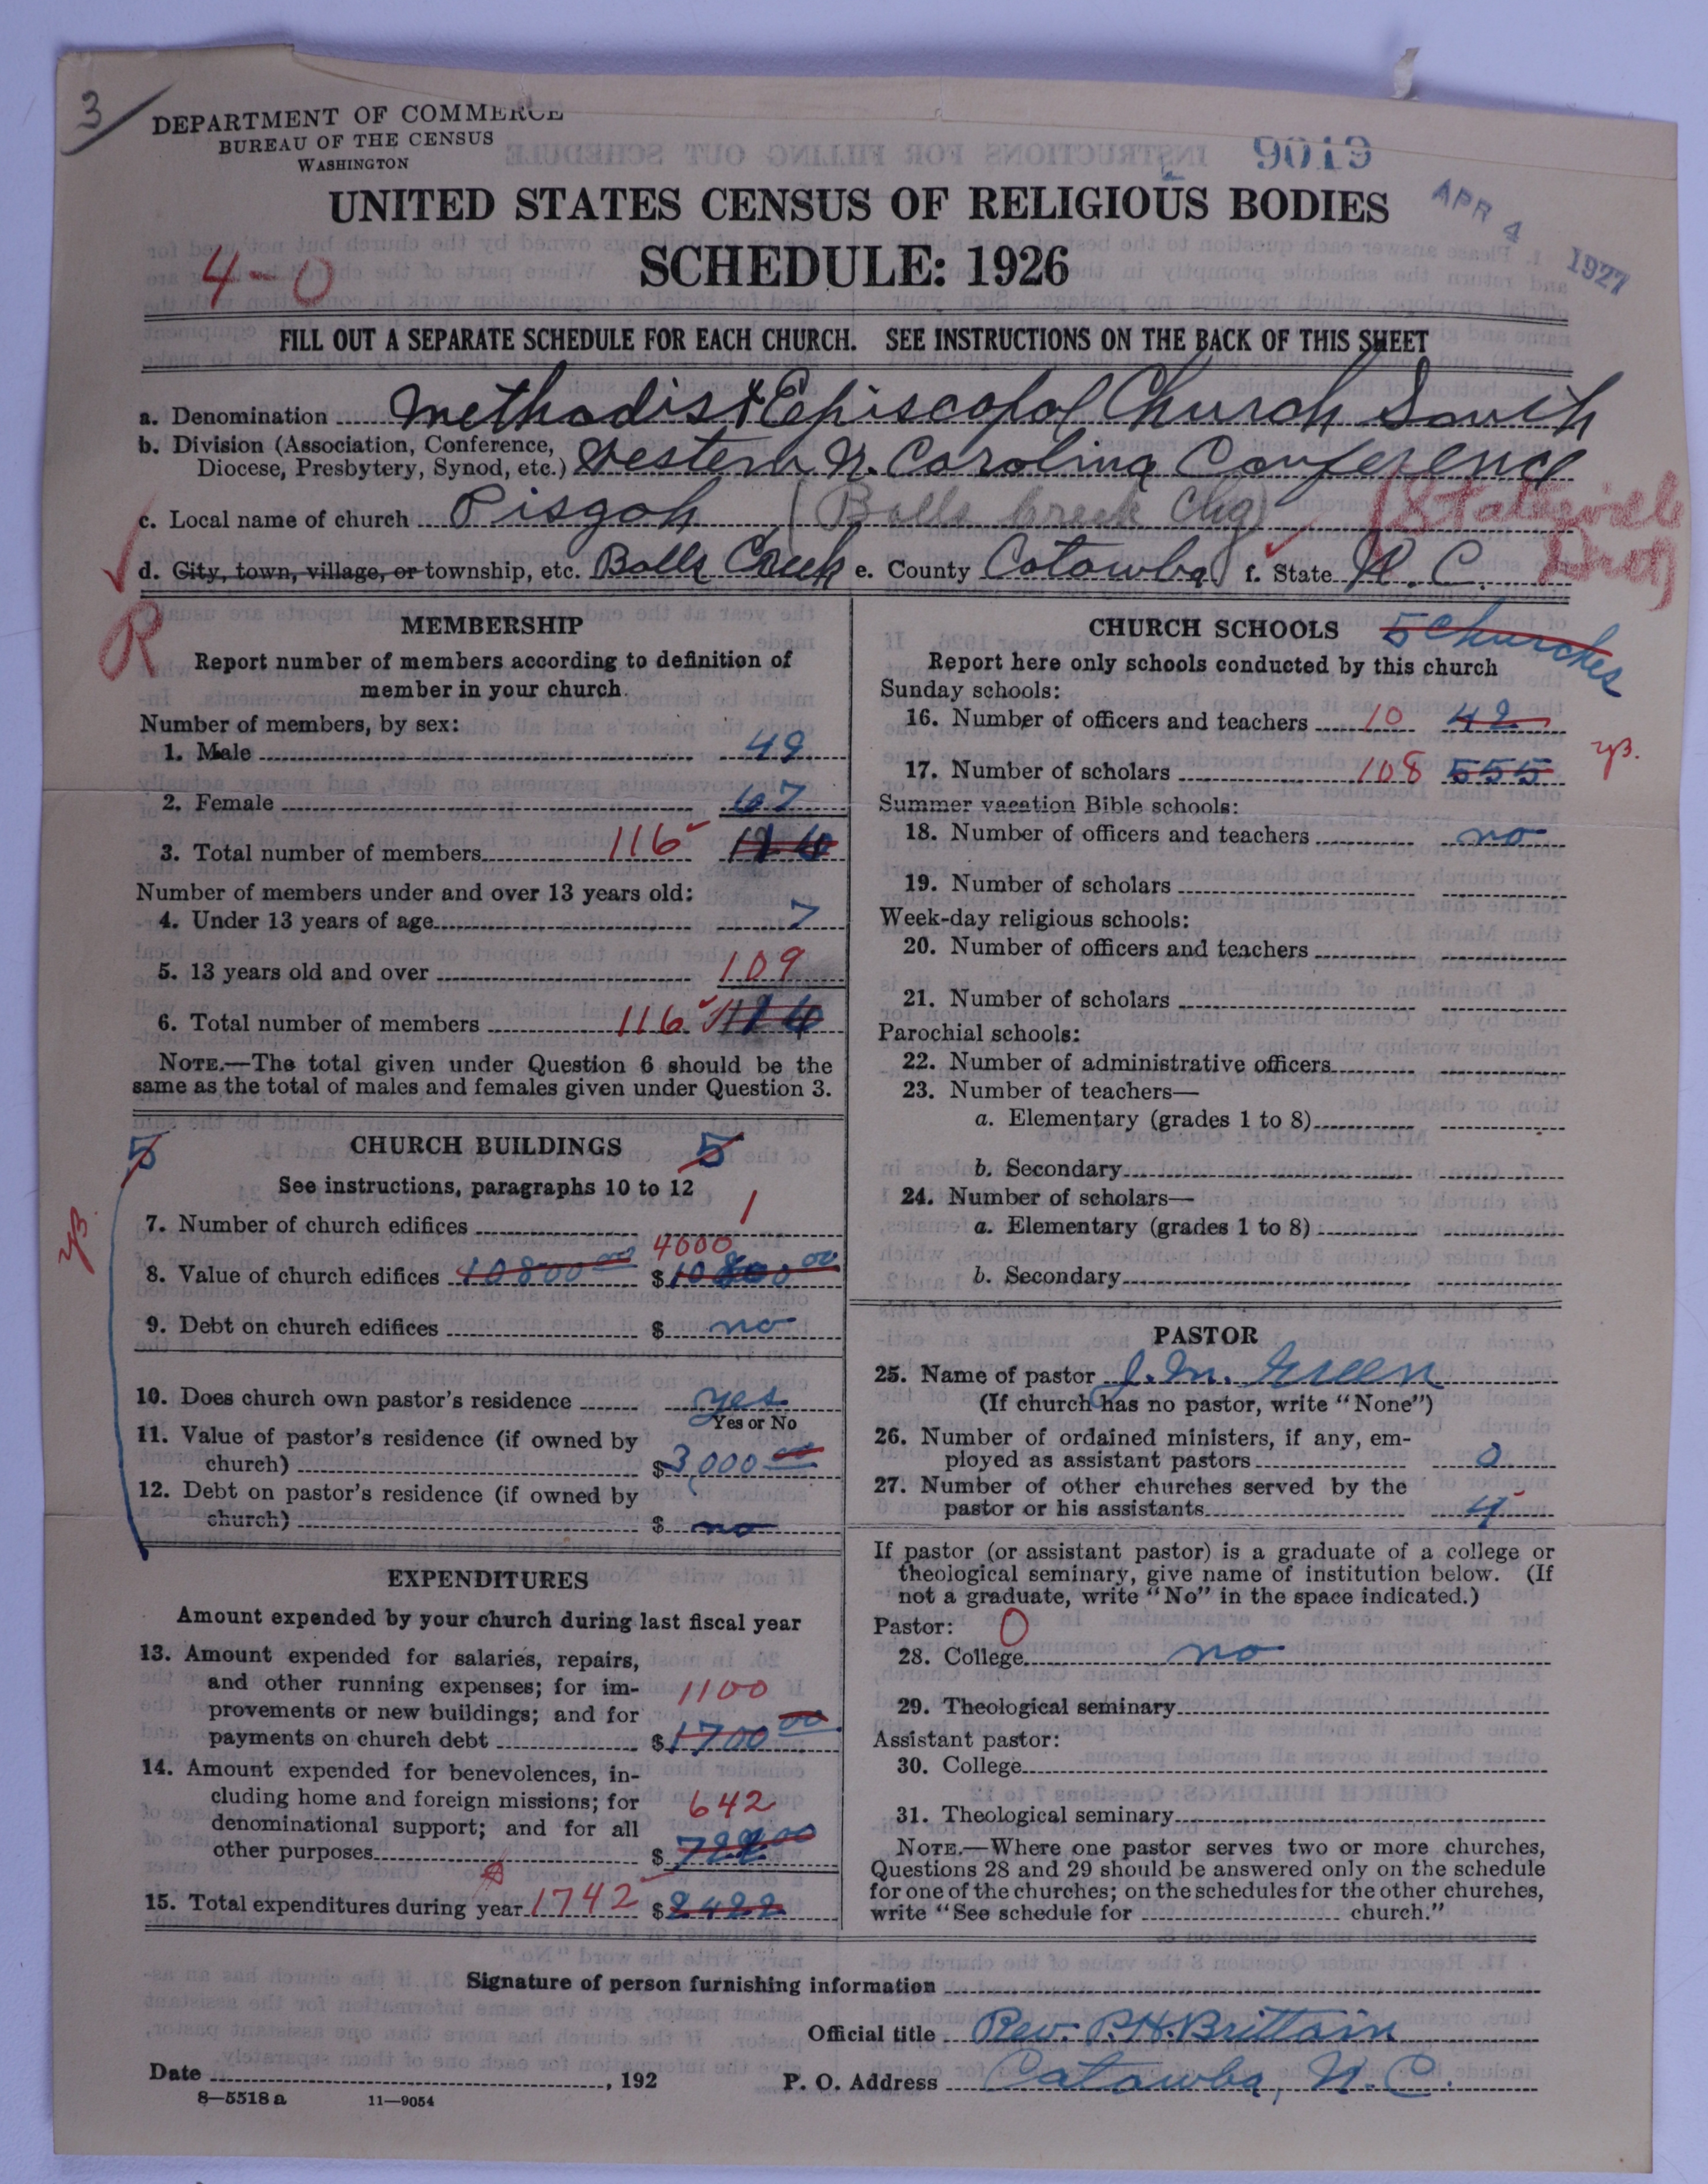 3
DEPARTMENT OF COMMERCE
BUREAU OF THE CENSUS
WASHINGTON
9019
APR 4 1927
UNITED STATES CENSUS OF RELIGIOUS BODIES
SCHEDULE: 1926
4-0
FILL OUT A SEPARATE SCHEDULE FOR EACH CHURCH. SEE INSTRUCTIONS ON THE BACK OF THIS SHEET
a. Denomination Methodist Episcopal Church South
b. Division (Association, Conference,
Diocese, Presbytery, Synod, etc.) Western N. Carolina Conference
c. Local name of church Pisgah (Balls Creek Chg) (Statesville
d. City, town, village, or township, etc. Balls Creek e. County Catawba f. State N. C. Dist)
R
MEMBERSHIP
Report number of members according to definition of
member in your church.
Number of members, by sex:
1. Male 49
2. Female 67
3. Total number of members 116
Number of members under and over 13 years old:
4. Under 13 years of age 7
5. 13 years old and over 109
6. Total number of members 116
NOTE.—The total given under Question 6 should be the
same as the total of males and females given under Question 3.
5 CHURCH BUILDINGS 5
See instructions, paragraphs 10 to 12
7. Number of church edifices 1
4000
8. Value of church edifices 10800 00 $10800 00
9. Debt on church edifices $ no
10. Does church own pastor's residence yes
Yes or No
11. Value of pastor's residence (if owned by
church) $3,000 00
12. Debt on pastor's residence (if owned by
church) $ no
EXPENDITURES
Amount expended by your church during last fiscal year
13. Amount expended for salaries, repairs,
and other running expenses; for im-
provements or new buildings; and for 1100
payments on church debt $1700 00
14. Amount expended for benevolences, in-
cluding home and foreign missions; for
denominational support; and for all 642
other purposes $722 00
15. Total expenditures during year 1742 $2422
CHURCH SCHOOLS 5 Churches
Report here only schools conducted by this church
Sunday schools:
16. Number of officers and teachers 10 42
17. Number of scholars 108 555
Summer vacation Bible schools:
18. Number of officers and teachers no
19. Number of scholars
Week-day religious schools:
20. Number of officers and teachers
21. Number of scholars
Parochial schools:
22. Number of administrative officers
23. Number of teachers—
a. Elementary (grades 1 to 8)
b. Secondary
24. Number of scholars—
a. Elementary (grades 1 to 8)
b. Secondary
PASTOR
25. Name of pastor J. M. Green
(If church has no pastor, write "None")
26. Number of ordained ministers, if any, em-
ployed as assistant pastors 0
27. Number of other churches served by the
pastor or his assistants 4
If pastor (or assistant pastor) is a graduate of a college or
theological seminary, give name of institution below. (If
not a graduate, write "No" in the space indicated.)
Pastor: 0
28. College no
29. Theological seminary
Assistant pastor:
30. College
31. Theological seminary
NOTE.—Where one pastor serves two or more churches,
Questions 28 and 29 should be answered only on the schedule
for one of the churches; on the schedules for the other churches,
write "See schedule for church."
Signature of person furnishing information
Official title Rev. P.H. Brittain
Date , 192 P. O. Address Catawba, N. C.
8—5518 a 11—9054